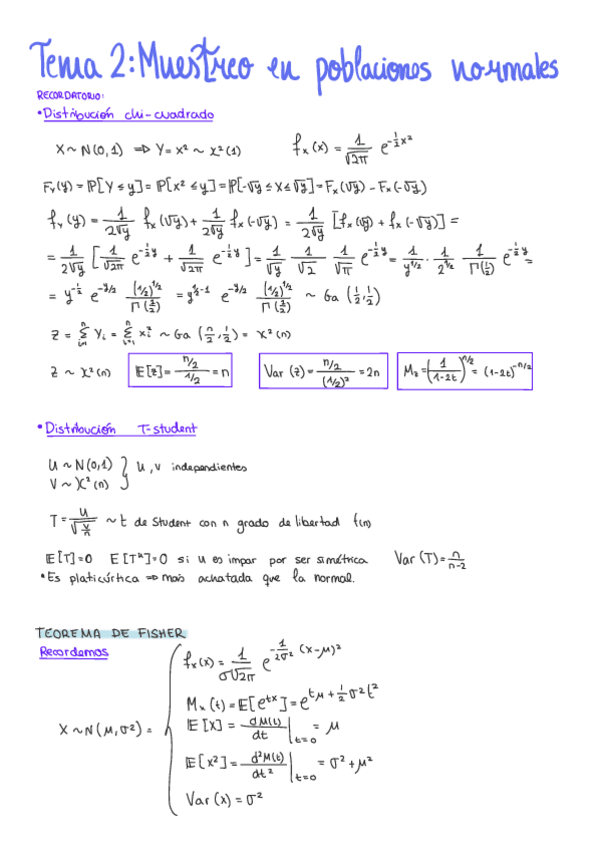 Tema 2: Muestreo en poblaciones normales
RECORDATORIO:
• Distribución chi-cuadrado
X ~ N(0,1) ⇒ Y = X² ~ χ²(1)   fₓ(x) = 1/√(2π) e^(-½x²)
F_Y(y) = P[Y ≤ y] = P[x² ≤ y] = P[-√y ≤ X ≤ √y] = Fₓ(√y) - Fₓ(-√y)
f_Y(y) = 1/(2√y) fₓ(√y) + 1/(2√y) fₓ(-√y) = 1/(2√y) [fₓ(√y) + fₓ(-√y)] =
= 1/(2√y) [1/√(2π) e^(-½y) + 1/√(2π) e^(-½y)] = 1/√y 1/√2 1/√π e^(-½y) = 1/y^(1/2) · 1/2^(1/2) 1/Γ(½) e^(-½y) =
= y^(-½) e^(-y/2) (1/2)^(1/2)/Γ(½) = y^(½-1) e^(-y/2) (1/2)^(1/2)/Γ(½) ~ Ga (½, ½)
Z = Σ_(i=1)^n Y_i = Σ_(i=1)^n x_i² ~ Ga (n/2, ½) = χ²(n)
Z ~ χ²(n)   E[Z] = (n/2)/(1/2) = n   Var (Z) = (n/2)/(1/2)² = 2n   M_Z = (1/(1-2t))^(n/2) = (1-2t)^(-n/2)
• Distribución T-student
U ~ N(0,1) } U, V independientes
V ~ χ²(n)
T = U/√(V/n) ~ t de Student con n grado de libertad t(n)
E[T] = 0   E[T^k] = 0 si u es impar por ser simétrica   Var (T) = n/(n-2)
• Es platicúrtica ⇒ más achatada que la normal.
TEOREMA DE FISHER
Recordemos
fₓ(x) = 1/(σ√(2π)) e^(-1/(2σ²) (x-μ)²)
Mₓ(t) = E[e^(tx)] = e^(tμ + ½σ²t²)
X ~ N(μ, σ²) = { E[X] = dM(t)/dt |_(t=0) = μ
E[X²] = d²M(t)/dt² |_(t=0) = σ² + μ²
Var (x) = σ²